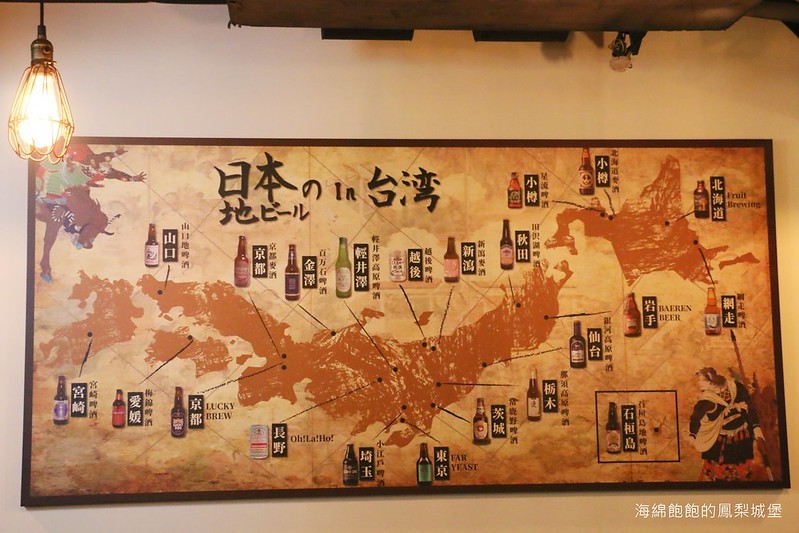 日本の in 台湾
地ビール
山口
山口地啤酒
京都
京都麥酒
金澤
百万石啤酒
輕井澤
輕井澤高原啤酒
越後
越後啤酒
新瀉
新瀉麥酒
秋田
田沢湖啤酒
小樽
星流啤酒
小樽
北海道麥酒
北海道
Fruit
Brewing
岩手
BAEREN
BEER
網走
網走啤酒
仙台
銀河高原啤酒
栃木
那須高原啤酒
茨城
常鹿野啤酒
石桓島
石桓島地啤酒
宮崎
宮崎啤酒
愛媛
梅錦啤酒
京都
LUCKY
BREW
長野
Oh!La!Ho!
埼玉
小江戶啤酒
東京
FAR
YEAST
海綿飽飽的鳳梨城堡